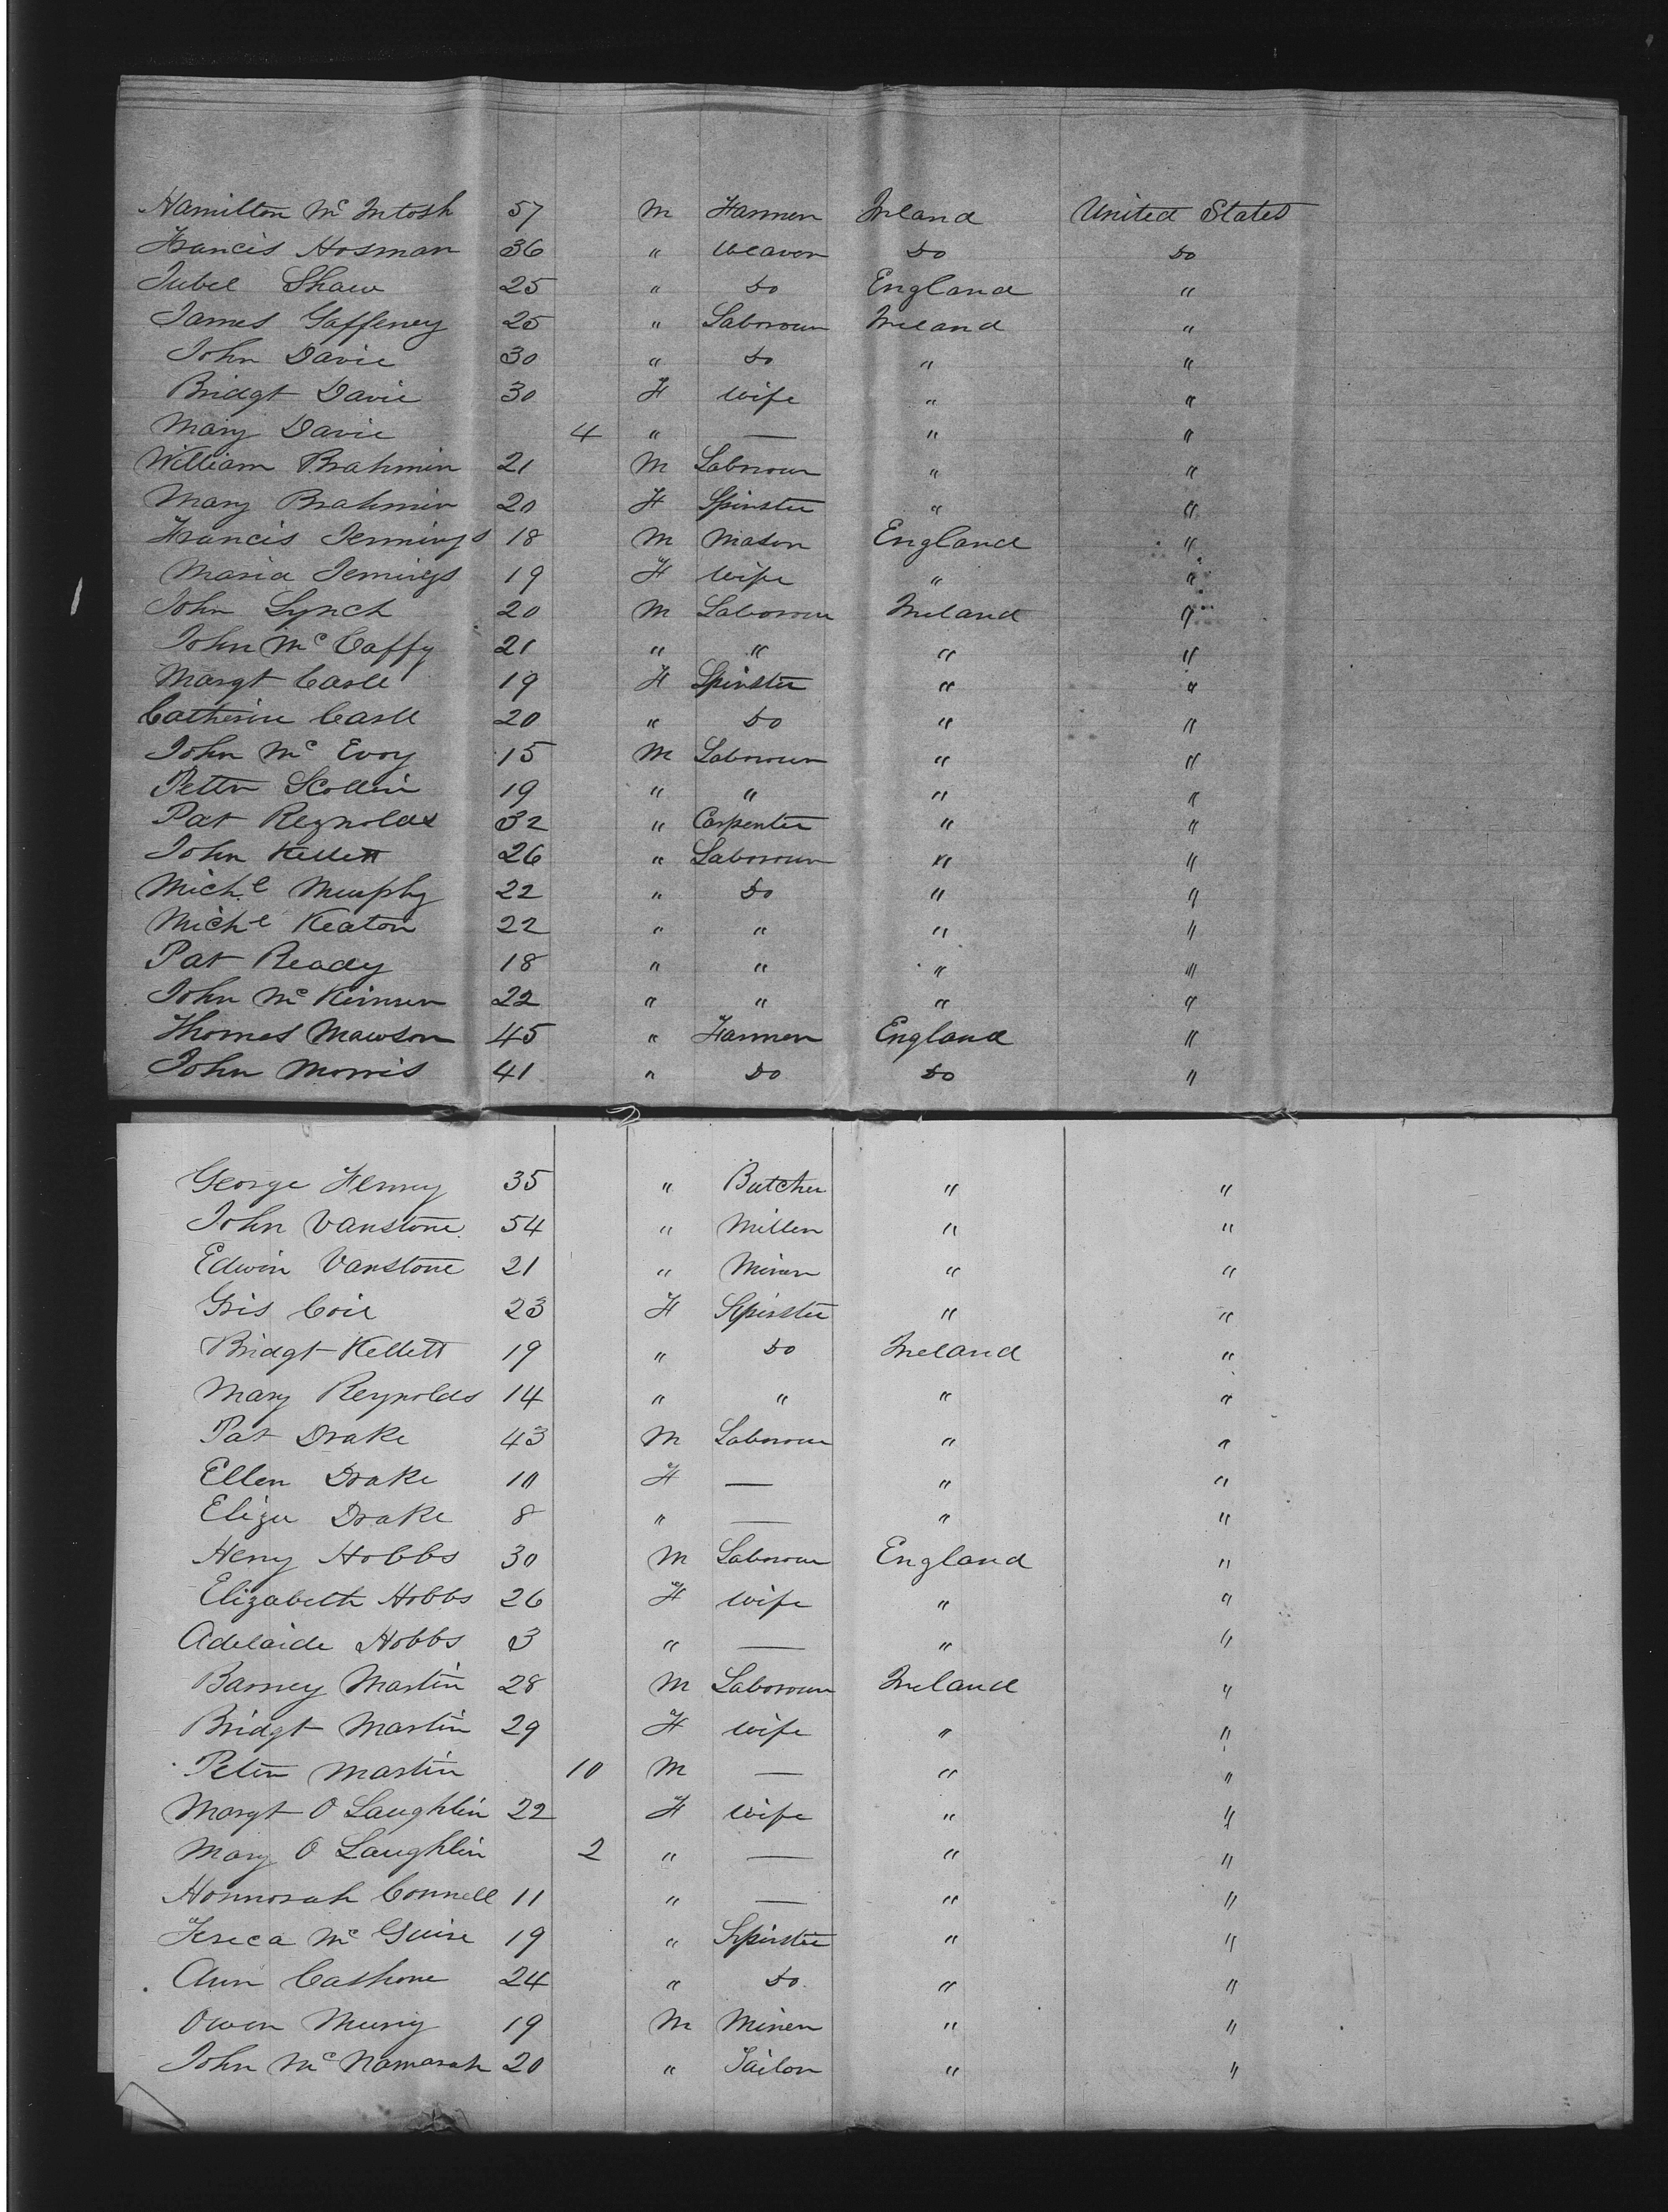 Hamilton Mc Intosh 57 M Farmer Ireland United States
Francis Hosman 36 " Weaver Do Do
Jubel Shaw 25 " Do England "
James Gaffeney 25 " Labourer Ireland "
John Davie 30 " Do " "
Bridgt Davie 30 F Wife " "
Mary Davie 4 " — " "
William Brahmin 21 M Labourer " "
Mary Brahmin 20 F Spinster " "
Francis Jennings 18 M Mason England "
Maria Jennings 19 F Wife " "
John Lynch 20 M Labourer Ireland "
John Mc Caffy 21 " " " "
Margt Carll 19 F Spinster " "
Catherine Carll 20 " Do " "
John Mc Evoy 15 M Labourer " "
Petter Scollin 19 " " " "
Pat Reynolds 32 " Carpenter " "
John Kellett 26 " Labourer " "
Michl Murphy 22 " Do " "
Michl Keaton 22 " " " "
Pat Ready 18 " " " "
John Mc Kirnun 22 " " " "
Thomas Mawson 45 " Farmer England "
John Morris 41 " Do Do "
George Henry 35 " Butcher " "
John Vanstone 54 " Miller " "
Edwin Vanstone 21 " Miner " "
Gris Coie 23 F Spinster " "
Bridgt Kellett 19 " Do Ireland "
Mary Reynolds 14 " " " "
Pat Drake 43 M Labourer " "
Ellen Drake 10 F — " "
Eliza Drake 8 " — " "
Heny Hobbs 30 M Labourer England "
Elizabeth Hobbs 26 F Wife " "
Adelaide Hobbs 3 " — " "
Barney Martin 28 M Labourer Ireland "
Bridgt Martin 29 F Wife " "
Peter Martin 10 M — " "
Margt O Laughlin 22 F Wife " "
Mary O Laughlin 2 " — " "
Honnorah Connell 11 " — " "
Tereca Mc Guire 19 " Spinster " "
Ann Cashone 24 " Do " "
Owen 19 M Miner " "
John Mc Namarah 20 " Tailor " "